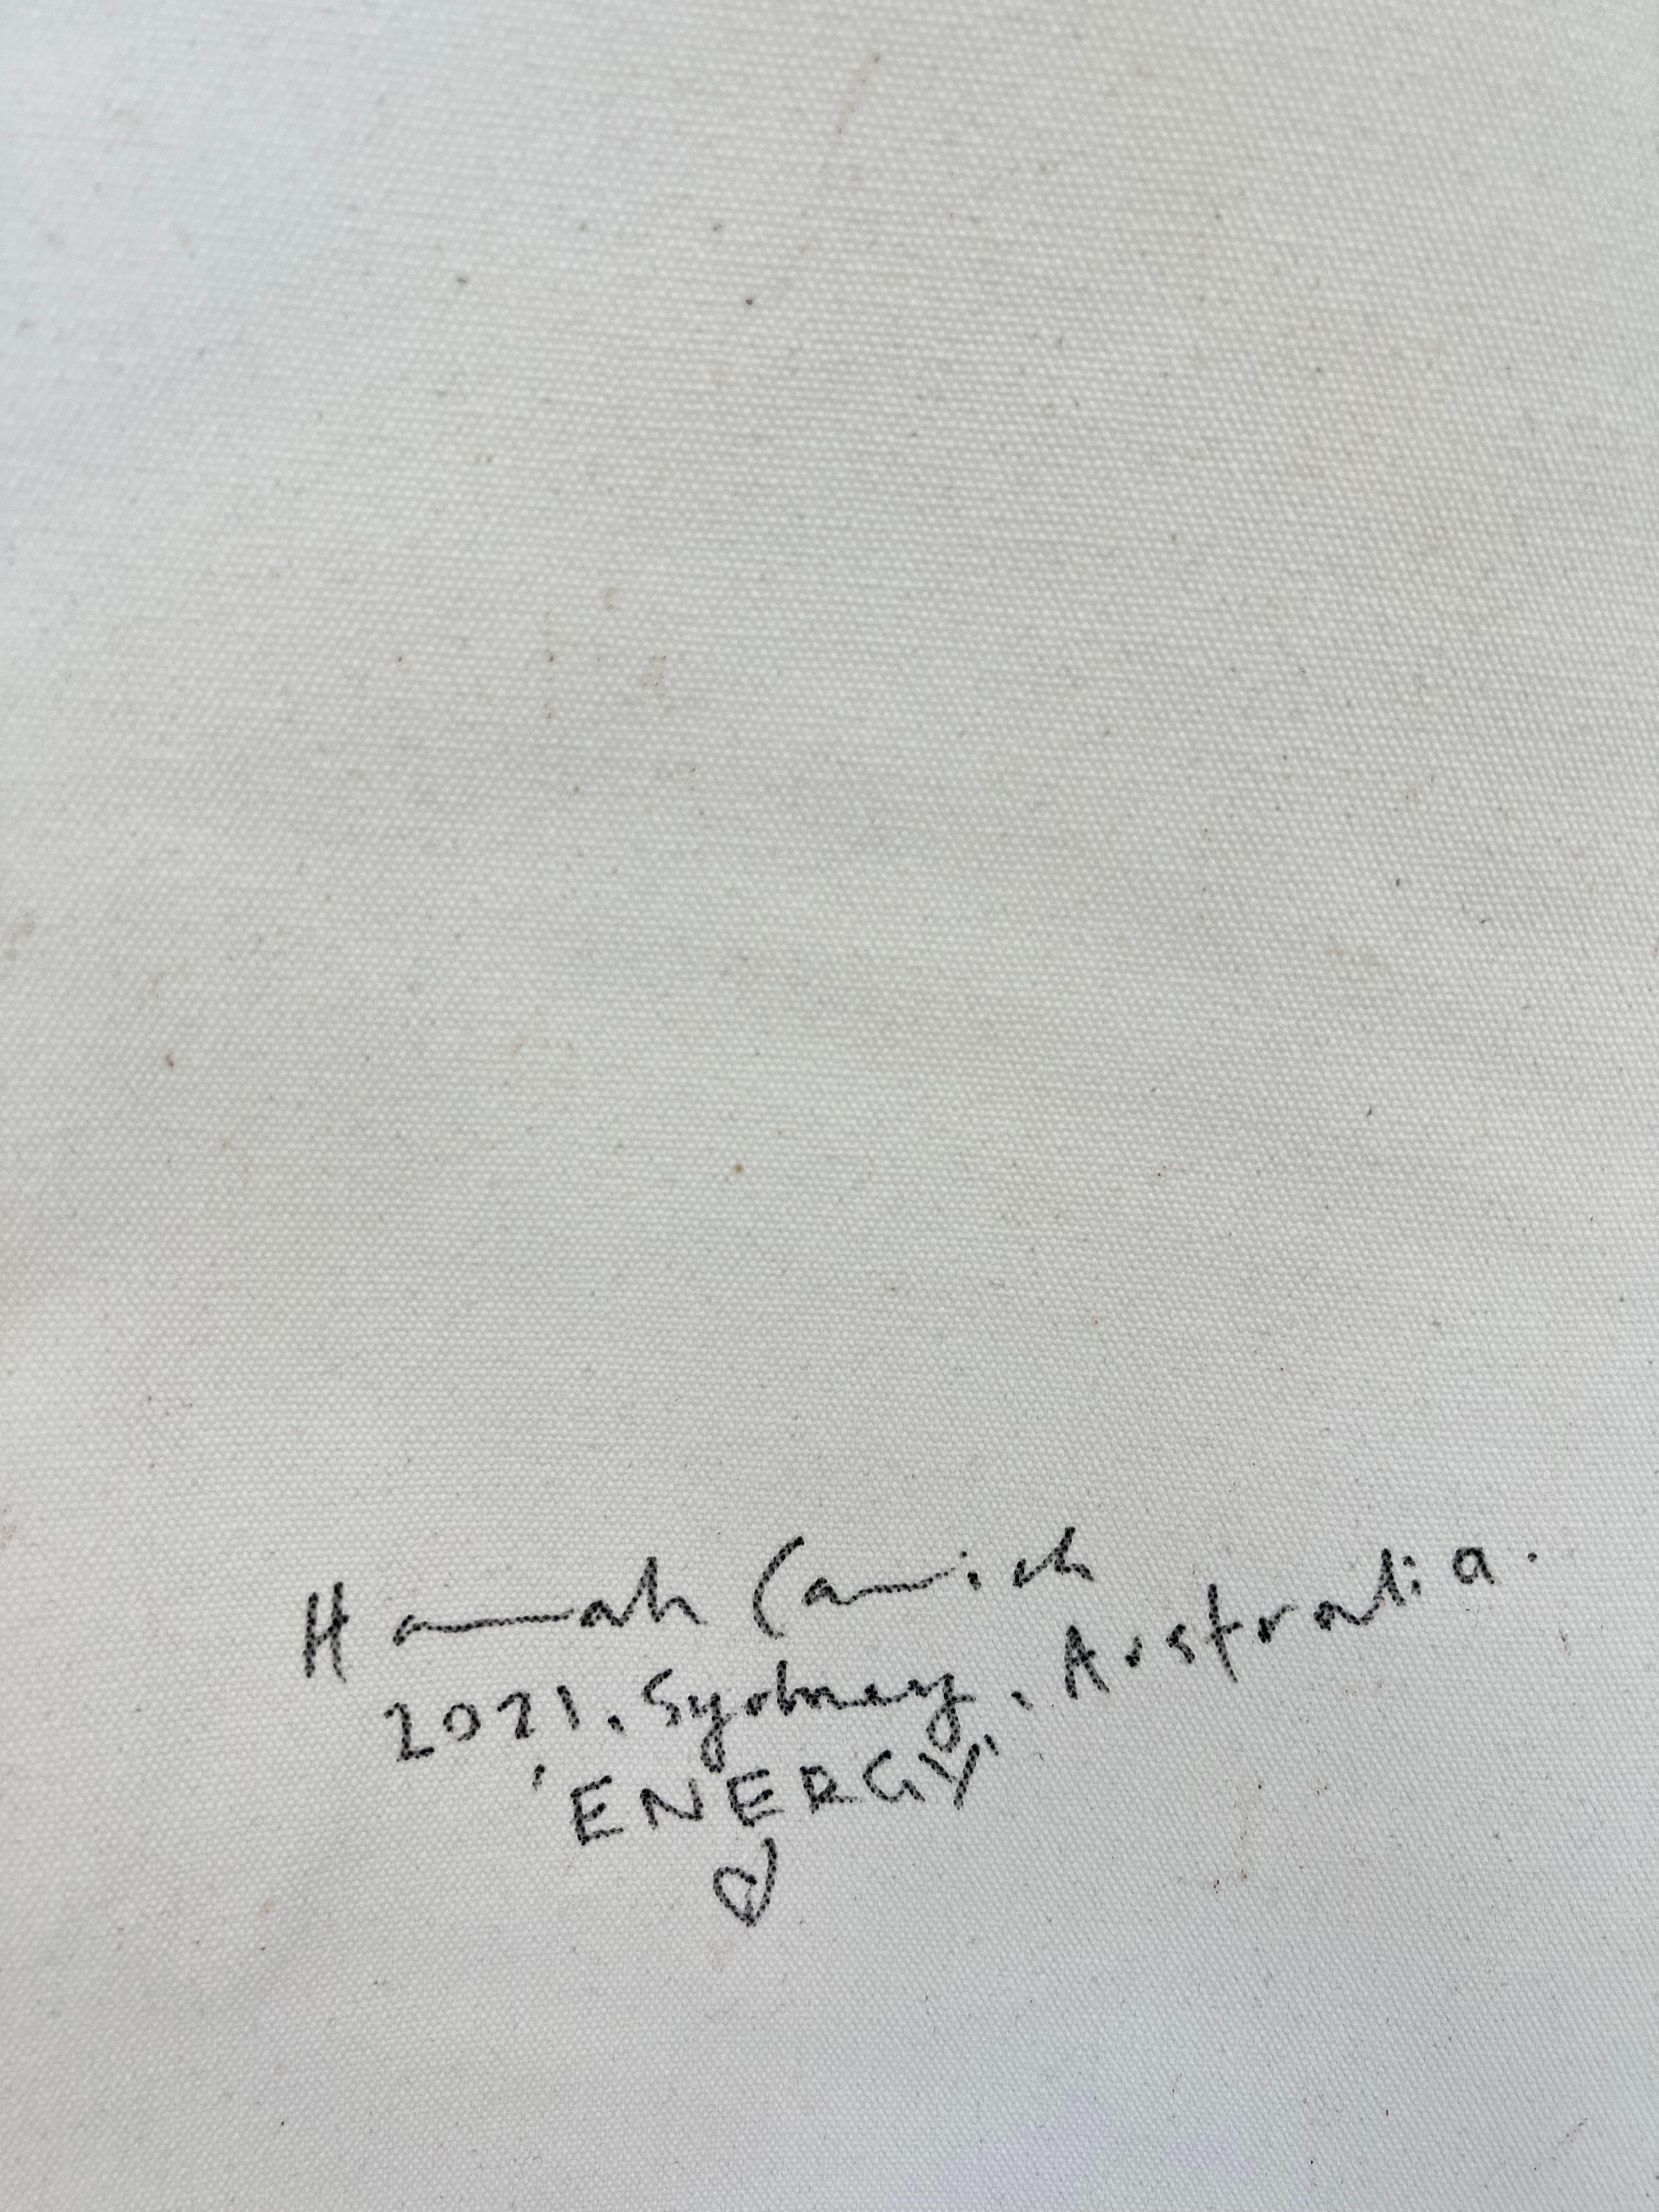 Hannah
2021. Sydney, Australia.
'ENERGY'